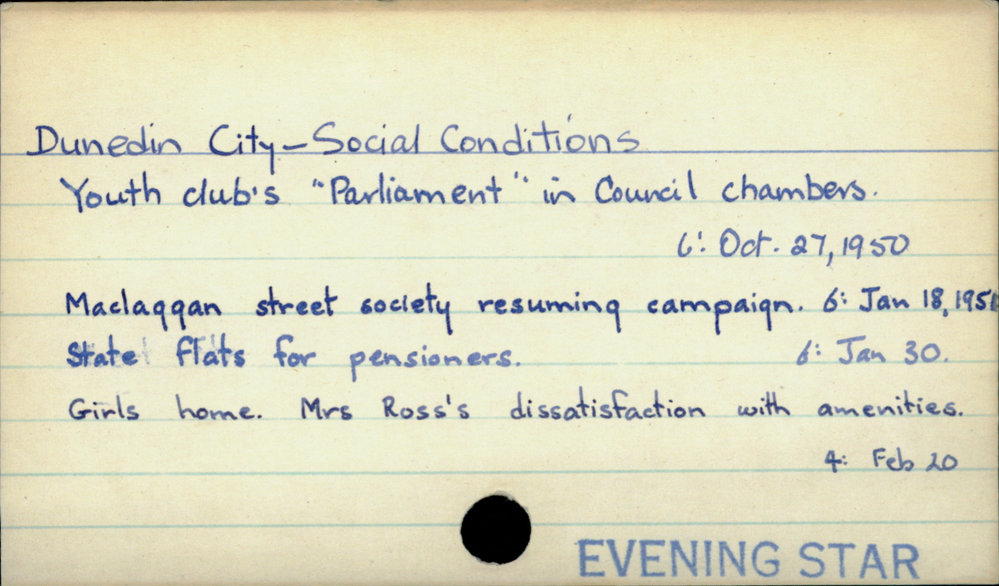 Dunedin City - Social Conditions
Youth club's "Parliament" in Council chambers.
6: Oct. 27, 1950
Maclaggan street society resuming campaign. 6: Jan 18, 1951
State flats for pensioners. 6: Jan 30.
Girls home. Mrs Ross's dissatisfaction with amenities.
4: Feb 20
EVENING STAR